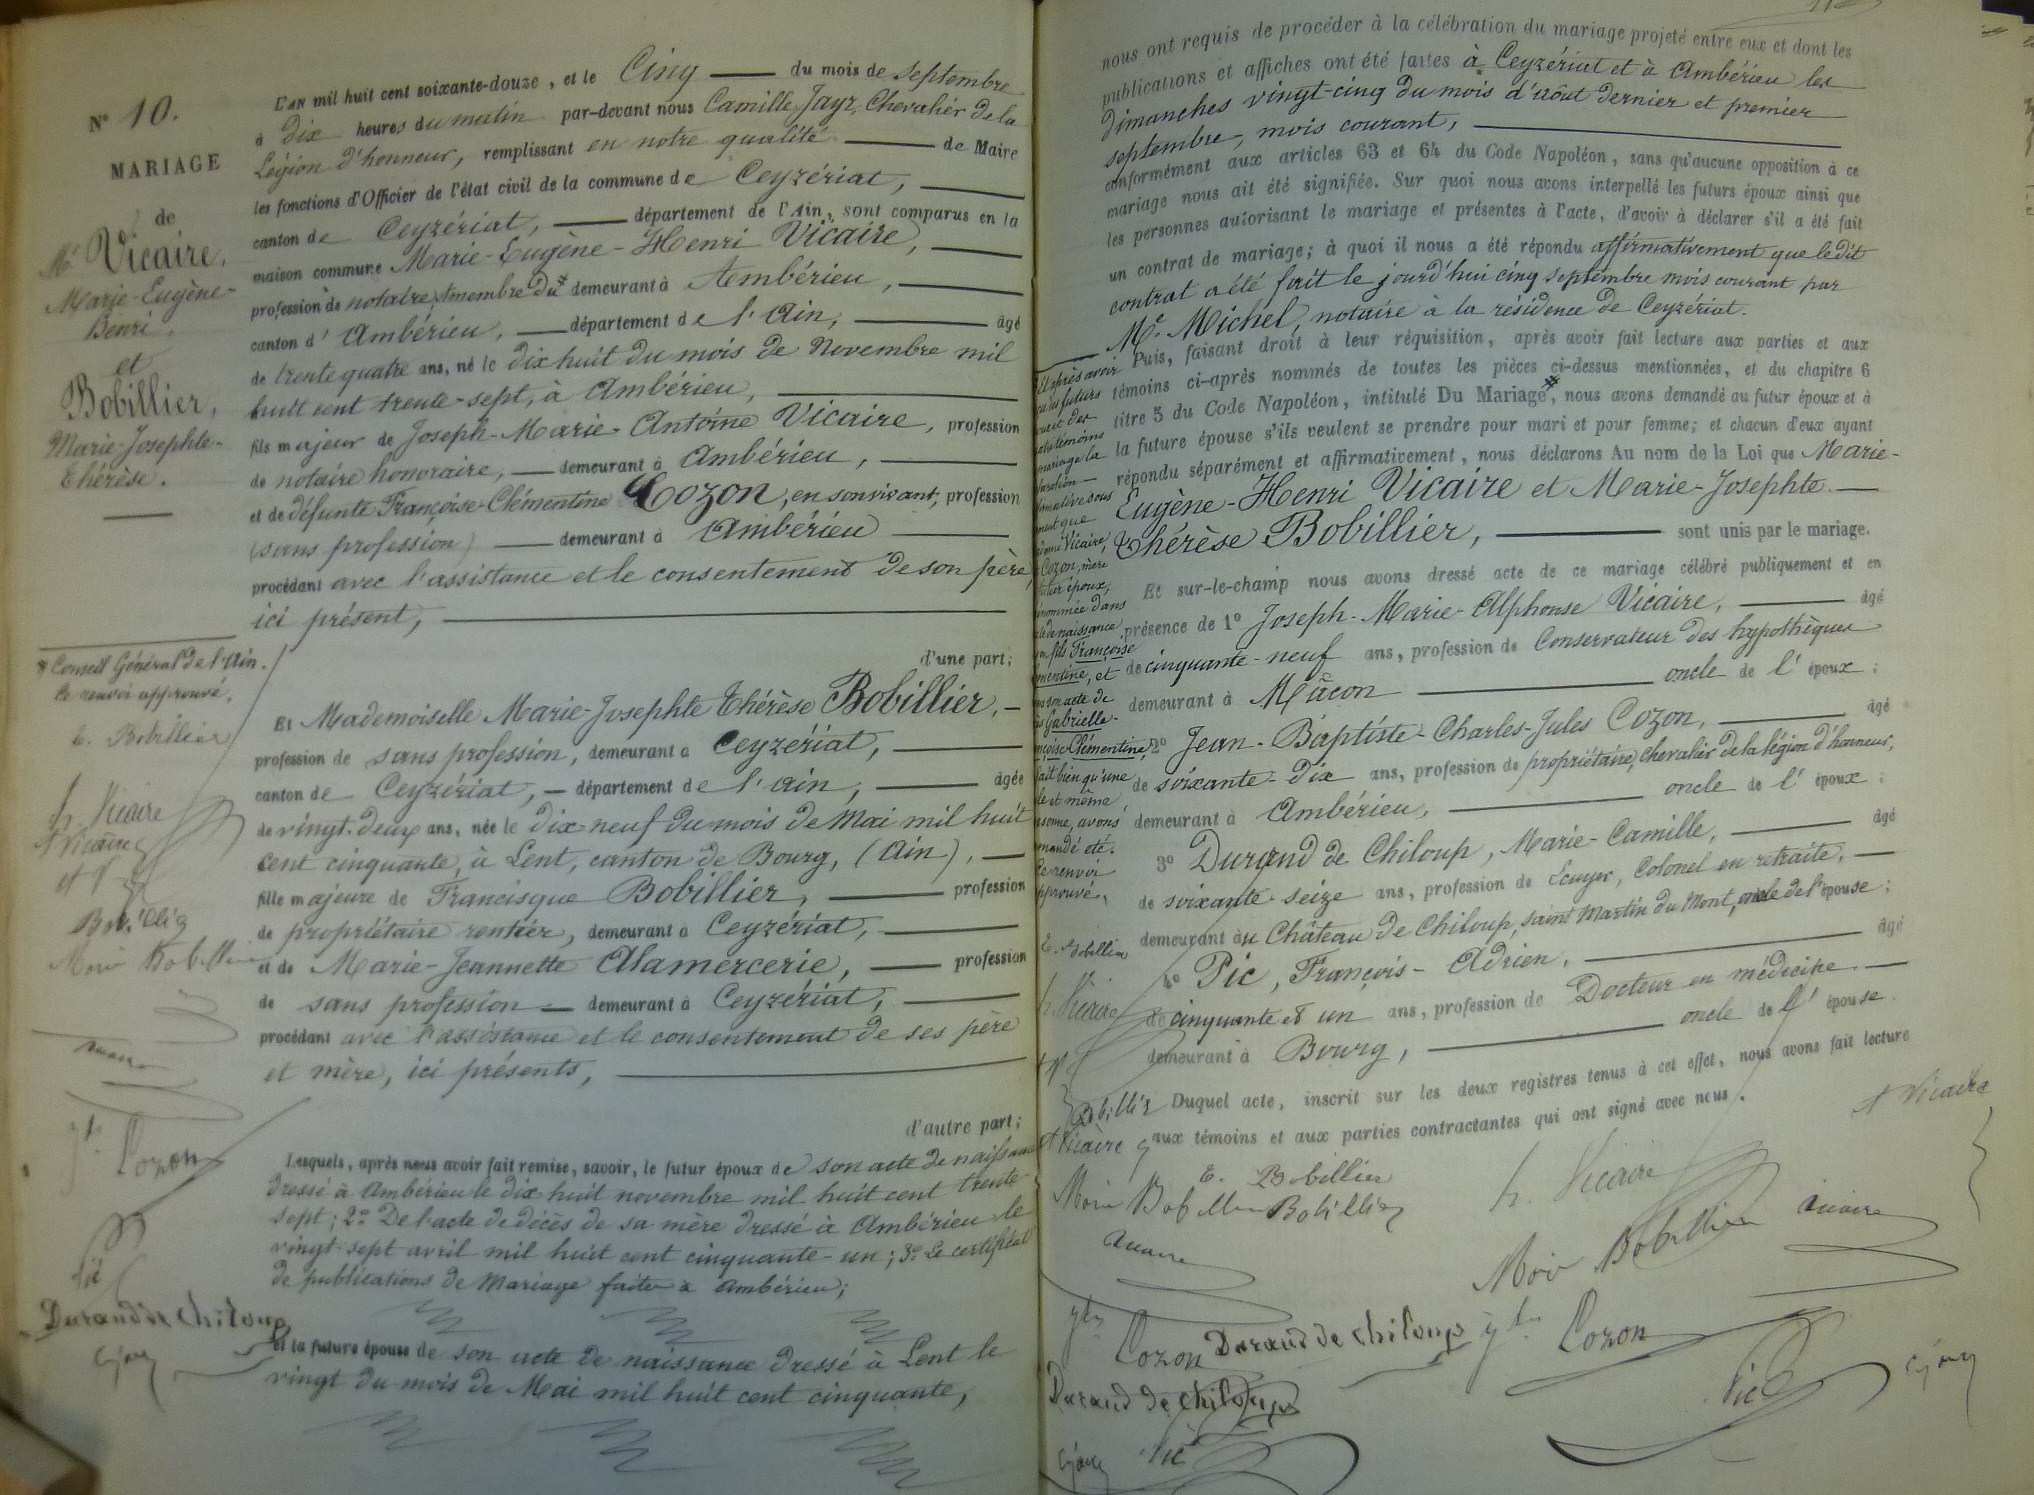 N° 10.
MARIAGE
de
Mr Vicaire,
Marie-Eugène-
Henri,
et
Bobillier,
Marie-Josephte-
Thérèse.
* Conseil Général de l'Ain.
Le renvoi approuvé.
E. Bobillier
h. Vicaire
A Vicaire
Bobillier
Marie Bobillier
Cozon
Pic
Durand de Chiloup
C Jayr
L'AN mil huit cent soixante-douze, et le Cinq du mois de septembre
à Dix heures du matin par-devant nous Camille Jayr, Chevalier de la
Légion d'honneur, remplissant en notre qualité de Maire
les fonctions d'Officier de l'état civil de la commune de Ceyzériat,
canton de Ceyzériat, département de l'Ain, sont comparus en la
maison commune Marie-Eugène-Henri Vicaire,
profession de notaire, membre du* demeurant à Ambérieu,
canton d'Ambérieu, département de l'Ain, âgé
de trente quatre ans, né le dix huit du mois de Novembre mil
huit cent trente-sept, à Ambérieu,
fils majeur de Joseph-Marie-Antoine Vicaire, profession
de notaire honoraire, demeurant à Ambérieu,
et de défunte Françoise-Clémentine Cozon, en son vivant, profession
(sans profession) demeurant à Ambérieu
procédant avec l'assistance et le consentement de son père,
ici présent,
d'une part;
Et Mademoiselle Marie-Josephte Thérèse Bobillier,
profession de sans profession, demeurant à Ceyzériat,
canton de Ceyzériat, département de l'Ain, âgée
de vingt-deux ans, née le dix neuf du mois de Mai mil huit
cent cinquante, à Lent, canton de Bourg, (Ain),
fille majeure de Francisque Bobillier, profession
de propriétaire rentier, demeurant à Ceyzériat,
et de Marie-Jeannette Alamercerie, profession
de sans profession demeurant à Ceyzériat,
procédant avec l'assistance et le consentement de ses père
et mère, ici présents,
d'autre part;
Lesquels, après nous avoir fait remise, savoir, le futur époux de son acte de naissance
dressé à Ambérieu le dix huit novembre mil huit cent trente
sept; 2° De l'acte de décès de sa mère dressé à Ambérieu le
vingt-sept avril mil huit cent cinquante-un; 3° Le certificat
de publications de Mariage faites à Ambérieu;
et la future épouse de son acte de naissance dressé à Lent le
vingt du mois de Mai mil huit cent cinquante,
nous ont requis de procéder à la célébration du mariage projeté entre eux et dont les
publications et affiches ont été faites à Ceyzériat et à Ambérieu les
dimanches vingt-cinq du mois d'août dernier et premier
septembre, mois courant,
conformément aux articles 63 et 64 du Code Napoléon, sans qu'aucune opposition à ce
mariage nous ait été signifiée. Sur quoi nous avons interpellé les futurs époux ainsi que
les personnes autorisant le mariage et présentes à l'acte, d'avoir à déclarer s'il a été fait
un contrat de mariage; à quoi il nous a été répondu affirmativement que le dit
contrat a été fait le jourd'hui cinq septembre mois courant par
Me Michel, notaire à la résidence de Ceyzériat.
Puis, faisant droit à leur réquisition, après avoir fait lecture aux parties et aux
témoins ci-après nommés de toutes les pièces ci-dessus mentionnées, et du chapitre 6
titre 5 du Code Napoléon, intitulé Du Mariage*, nous avons demandé au futur époux et à
la future épouse s'ils veulent se prendre pour mari et pour femme; et chacun d'eux ayant
répondu séparément et affirmativement, nous déclarons Au nom de la Loi que Marie-
Eugène-Henri Vicaire et Marie-Josephte
Thérèse Bobillier, sont unis par le mariage.
Et sur-le-champ nous avons dressé acte de ce mariage célébré publiquement et en
présence de 1° Joseph-Marie-Alphonse Vicaire, âgé
de cinquante-neuf ans, profession de Conservateur des hypothèques
demeurant à Mâcon oncle de l'époux;
2° Jean-Baptiste-Charles-Jules Cozon, âgé
de soixante-dix ans, profession de propriétaire, chevalier de la légion d'honneur,
demeurant à Ambérieu, oncle de l'époux;
3° Durand de Chiloup, Marie-Camille, âgé
de soixante seize ans, profession de Ecuyer, Colonel en retraite,
demeurant au Château de Chiloup, saint Martin du Mont, oncle de l'épouse;
4° Pic, François-Adrien, âgé
de cinquante et un ans, profession de Docteur en médecine
demeurant à Bourg, oncle de l'épouse.
Duquel acte, inscrit sur les deux registres tenus à cet effet, nous avons fait lecture
aux témoins et aux parties contractantes qui ont signé avec nous.
Et après avoir
futurs
témoins
mariage la
sous
que
Vicaire,
Cozon, mère
époux,
dénommée dans
de naissance
fils Françoise
et
acte de
Gabrielle-
Clémentine,
bien qu'une
et même
personne, avons
mandé etc.
Le renvoi
approuvé.
E. Bobillier
h. Vicaire
Bobillier
A Vicaire
Marie Bobillier
Cozon
Durand de Chiloup
C Jayr
Pic
A Vicaire
E. Bobillier
h. Vicaire
Bobillier
Marie Bobillier
Vicaire
Durand de Chiloup
Cozon
Pic
C Jayr